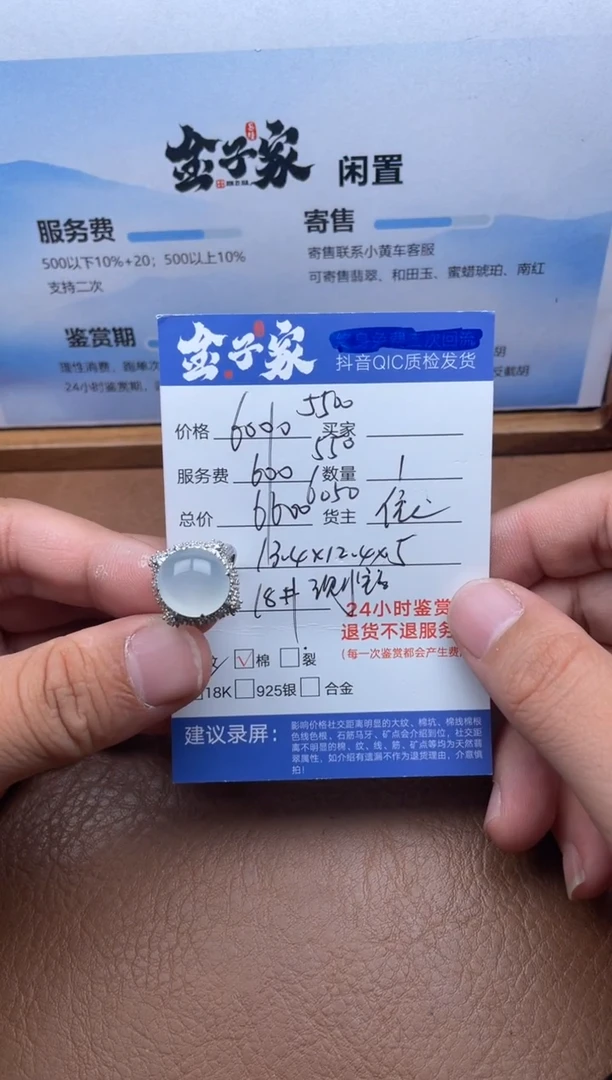 金子家 闲置
服务费
500以下10%+20；500以上10%
支持二次
寄售
寄售联系小黄车客服
可寄售翡翠、和田玉、蜜蜡琥珀、南红
鉴赏期
理性消费，跑单
24小时鉴赏期，
金子家
抖音QIC质检发货
5500
价格 6000 买家
550
服务费 600 数量 1
6050
总价 6600 货主
13.4×12.4×5
18#
24小时鉴赏
退货不退服务
(每一次鉴赏都会产生费
棉 裂
18K 925银 合金
建议录屏：
影响价格社交距离明显的大纹、棉坑、棉线棉根
色线色根、石筋马牙、矿点会介绍到位，社交距
离不明显的棉、纹、线、筋、矿点等均为天然翡
翠属性，如介绍有遗漏不作为退货理由，介意慎
拍！